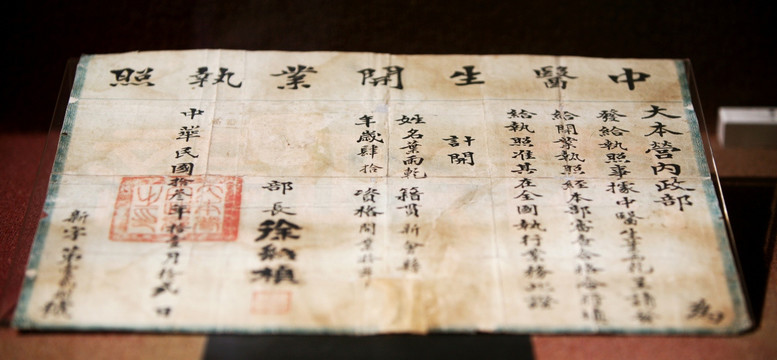 中醫生開業執照
大本營內政部
發給執照事據中醫生葉雨乾呈請
給開業執照經本部審查合格合行填
給執照准其在全國執行業務此證
計開
姓名葉雨乾 籍貫新會縣
年歲肆拾 資格開業拾年
部長徐紹楨
中華民國拾叁年拾壹月拾貳日
新字第
號